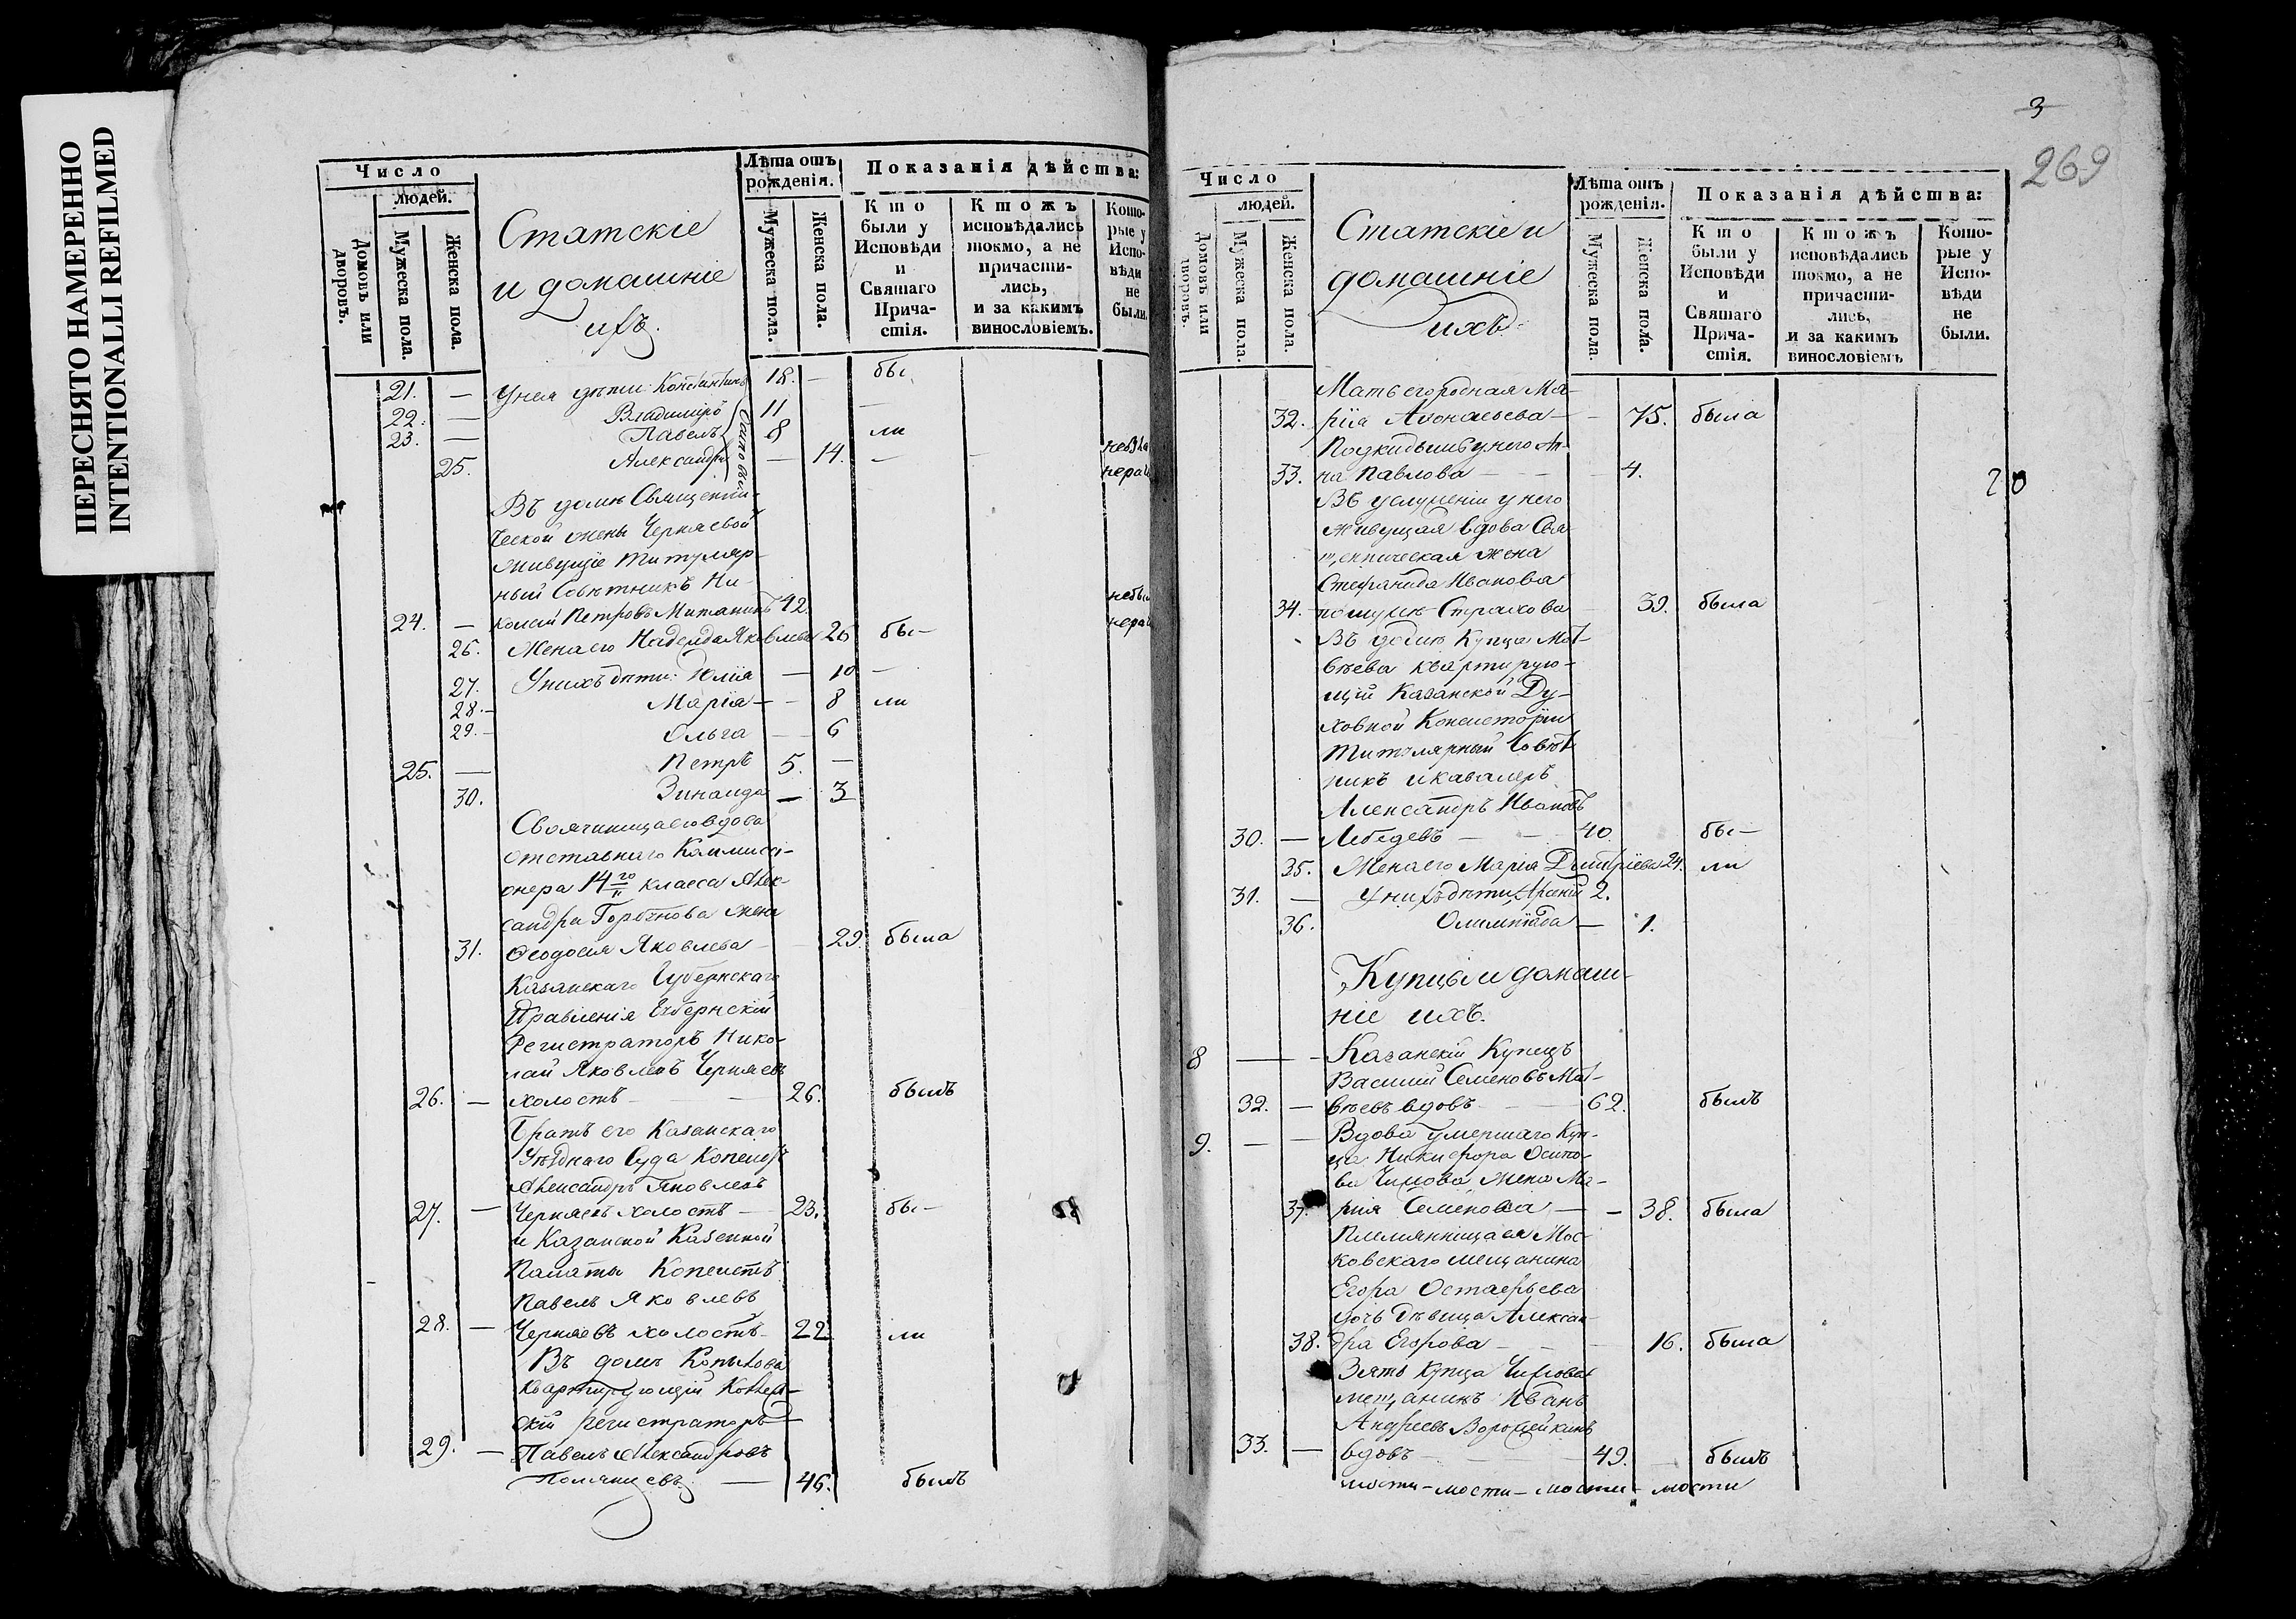 ПЕРЕСНЯТО НАМЕРЕННО
INTENTIONALLI REFILMED
Число
людей.
Домовъ или дворовъ.
Мужеска пола.
Женска пола.
Статскіе
и домашніе
ихъ.
Лѣта отъ рожденія.
Мужеска пола.
Женска пола.
Показанія дѣйства:
Кто были у Исповѣди и Святаго Причастія.
Ктожъ исповѣдались токмо, а не причастились, и за какимъ винословіемъ.
Которые у Исповѣди не были.
21. — Унея дѣти: Константинъ 18. — бы
22. — Владиміръ 11 —
23. — Павелъ 8 ли
25. Александра — 14. — —
Осиповы
Въ домѣ Священни-
ческой жены Черняевой
живущіе Титуляр-
ный Совѣтникъ Ни-
24. — колай Петровъ 42
26. Жена его Надежда Яковлева 26 бы—
27. У нихъ дѣти: Юлія — 10 —
28. — Марія — — 8 ли
29. — Ольга — 6
25. — Петръ 5. —
30. Зинаида — 3
Своячиница его вдова
отставнаго Коммисі-
онера 14го класса Алек-
сандра Горбунова жена
31. Ѳеодосія Яковлева — 29. была
Казанскаго Губернскаго
Правленія Губернскій
Регистраторъ Нико-
лай Яковлевъ Черняевъ
26. — холостъ — 26. былъ
Братъ его Казанскаго
Уѣзднаго Суда Копеистъ
Александръ Яковлевъ
27. — Черняевъ холостъ — 23. бы—
и Казанской Казенной
Палаты Копеистъ
Павелъ Яковлевъ
28. — Черняевъ холостъ — 22 ли
Въ домѣ Копылова
квартирующій Коллеж-
скій регистраторъ
29. — Павелъ Александровъ
— 46. былъ
3
269
Число
людей.
Домовъ или дворовъ.
Мужеска пола.
Женска пола.
Статскіе и
домашніе
ихъ.
Лѣта отъ рожденія.
Мужеска пола.
Женска пола.
Показанія дѣйства:
Кто были у Исповѣди и Святаго Причастія.
Ктожъ исповѣдались токмо, а не причастились, и за какимъ винословіемъ
Которые у Исповѣди не были.
Мать его родная Ма-
32. рія Аѳонасьева — — 75. была
Подкидышъ у него Ан-
33. на Павлова — — 4.
Въ услуженіи у него
живущая вдова Свя-
щенническая жена
Стефанида Иванова
34. — по мужѣ Страхова 39. была
Въ домѣ Купца Мат-
вѣева квартирую-
щій Казанской Ду-
ховной Консисторіи
Титулярный Совѣт-
никъ и кавалеръ
Александръ Ивановъ
30. — Лебедевъ — — 40 бы—
35. Жена его Марія Дмитріева 24. ли
31. — У нихъ дѣти: 2.
36. Олимпіада — 1.
Купцы и домаш-
ніе ихъ.
8 — — Казанскій Купецъ
Василій Семеновъ Мат-
32. — вѣевъ вдовъ — — 62. былъ
9. — — Вдова умершаго Куп-
ца Никифора Осипо-
ва Чижова жена Ма-
37. рія Семенова — — 38. была
Племянница ея Мос-
ковскаго мещанина
Егора Остафьева
дочь дѣвица Алексан-
38. дра Егорова — — 16. была
Зять Купца Чижова
мещанинъ Иванъ
Андреевъ
33. — вдовъ — — 49. — былъ
мости — мости — мости — мости